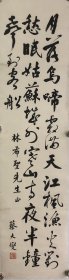 月落烏啼霜滿天江楓漁火對
愁眠姑蘇城外寒山寺夜半鐘
聲到客船
林希聖先生正
蔡文